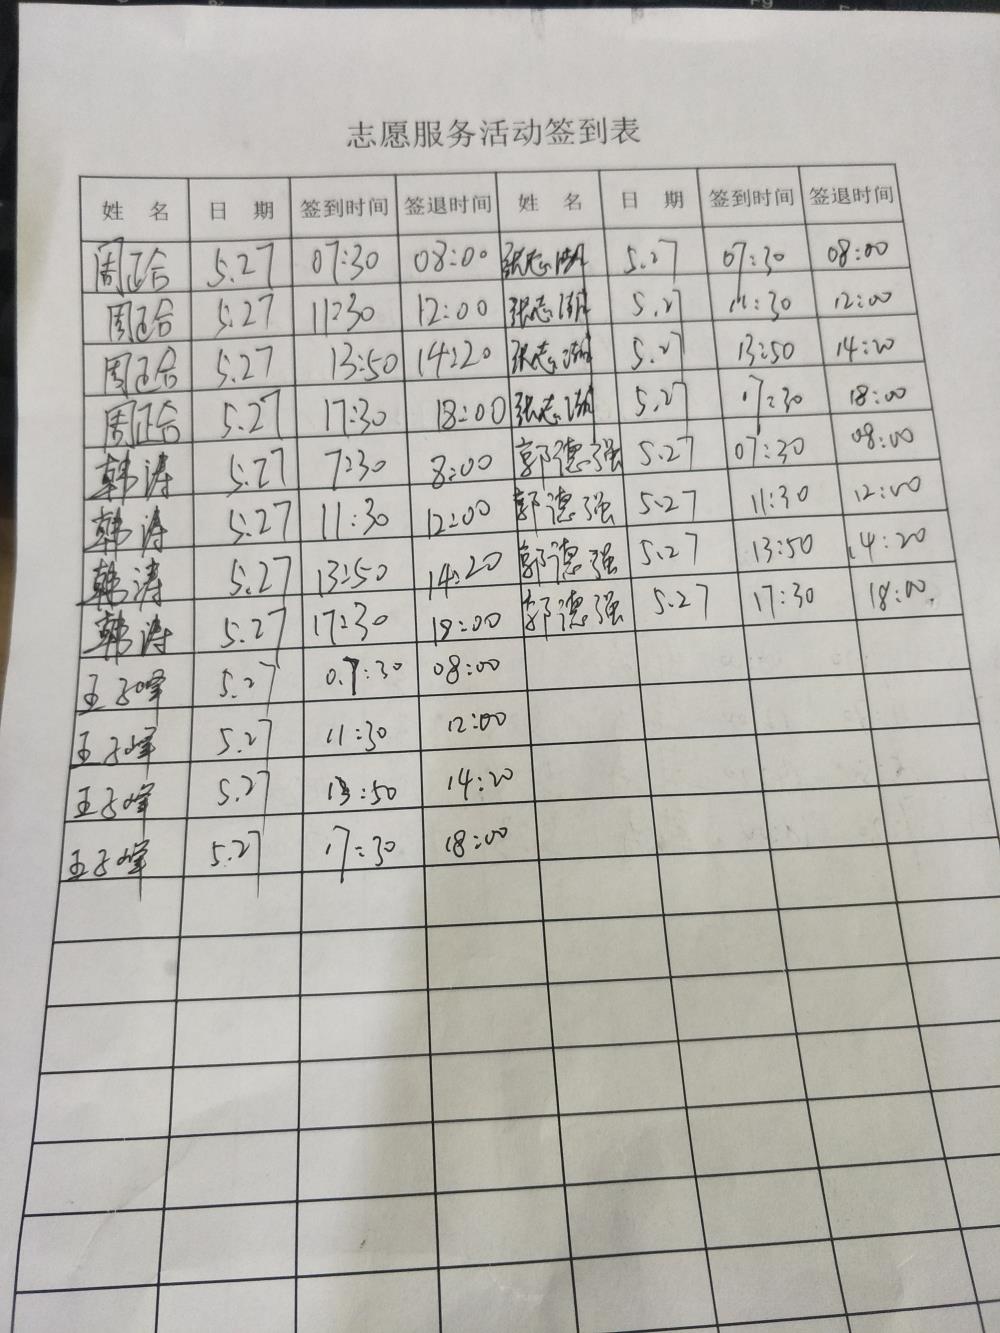 志愿服务活动签到表
姓 名 日 期 签到时间 签退时间 姓 名 日 期 签到时间 签退时间
周正合 5.27 07:30 08:00 张志潮 5.27 07:30 08:00
周正合 5.27 11:30 12:00 张志潮 5.27 11:30 12:00
周正合 5.27 13:50 14:20 张志潮 5.27 13:50 14:20
周正合 5.27 17:30 18:00 张志潮 5.27 17:30 18:00
韩涛 5.27 7:30 8:00 郭德强 5.27 07:30 08:00
韩涛 5.27 11:30 12:00 郭德强 5.27 11:30 12:00
韩涛 5.27 13:50 14:20 郭德强 5.27 13:50 14:20
韩涛 5.27 17:30 18:00 郭德强 5.27 17:30 18:00
王子峰 5.27 07:30 08:00
王子峰 5.27 11:30 12:00
王子峰 5.27 13:50 14:20
王子峰 5.27 17:30 18:00